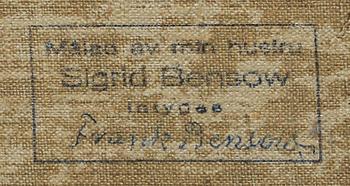 Målad av min hustru
Sigrid Bensow
intygas
Frank Bensow